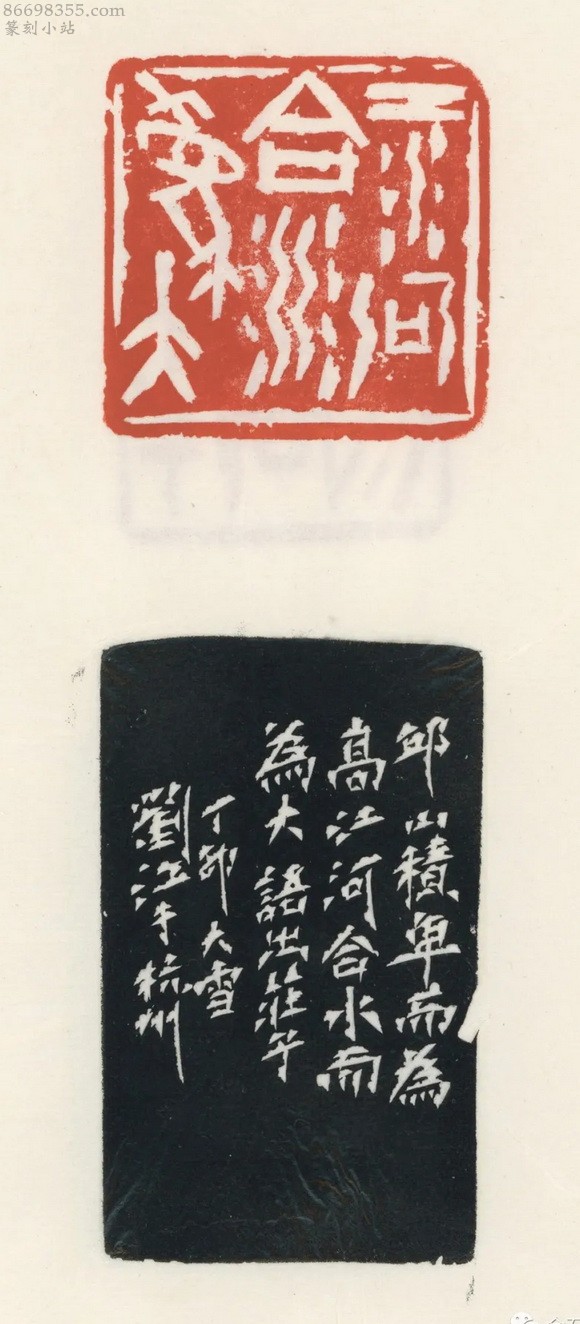 86698355.com
篆刻小站
江河
合水
為大
邱山積卑而為
高江河合水而
為大語出莊子
丁卯大雪
劉江于杭州